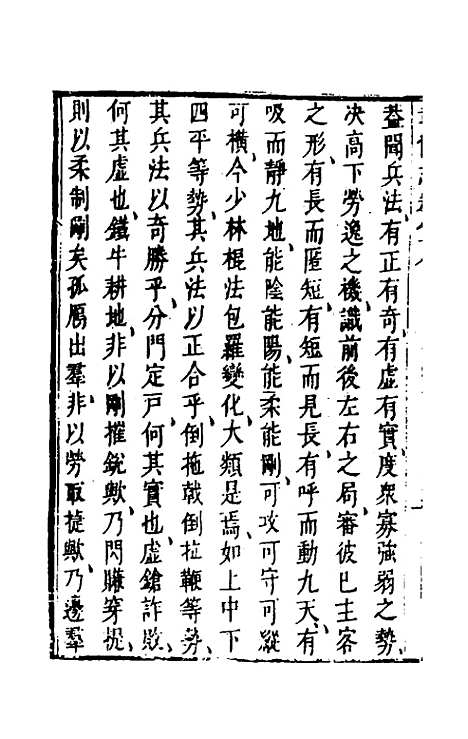 葢聞兵法有正有奇有虛有實度衆寡強弱之勢
决高下勞逸之機識前後左右之局審彼已主客
之形有長而匿短有短而見長有呼而動九天有
吸而靜九地能陰能陽能柔能剛可攻可守可縱
可橫今少林棍法包羅變化大類是焉如上中下
四平等勢其兵法以正合乎倒拖㦸倒拉鞭等勢
其兵法以奇勝乎分門定戸何其實也虛鎗詐敗
何其虛也鐵牛耕地非以剛摧銳歟乃閃賺穿提
則以柔制剛矣孤鴈出羣非以勞取捷歟乃邊羣